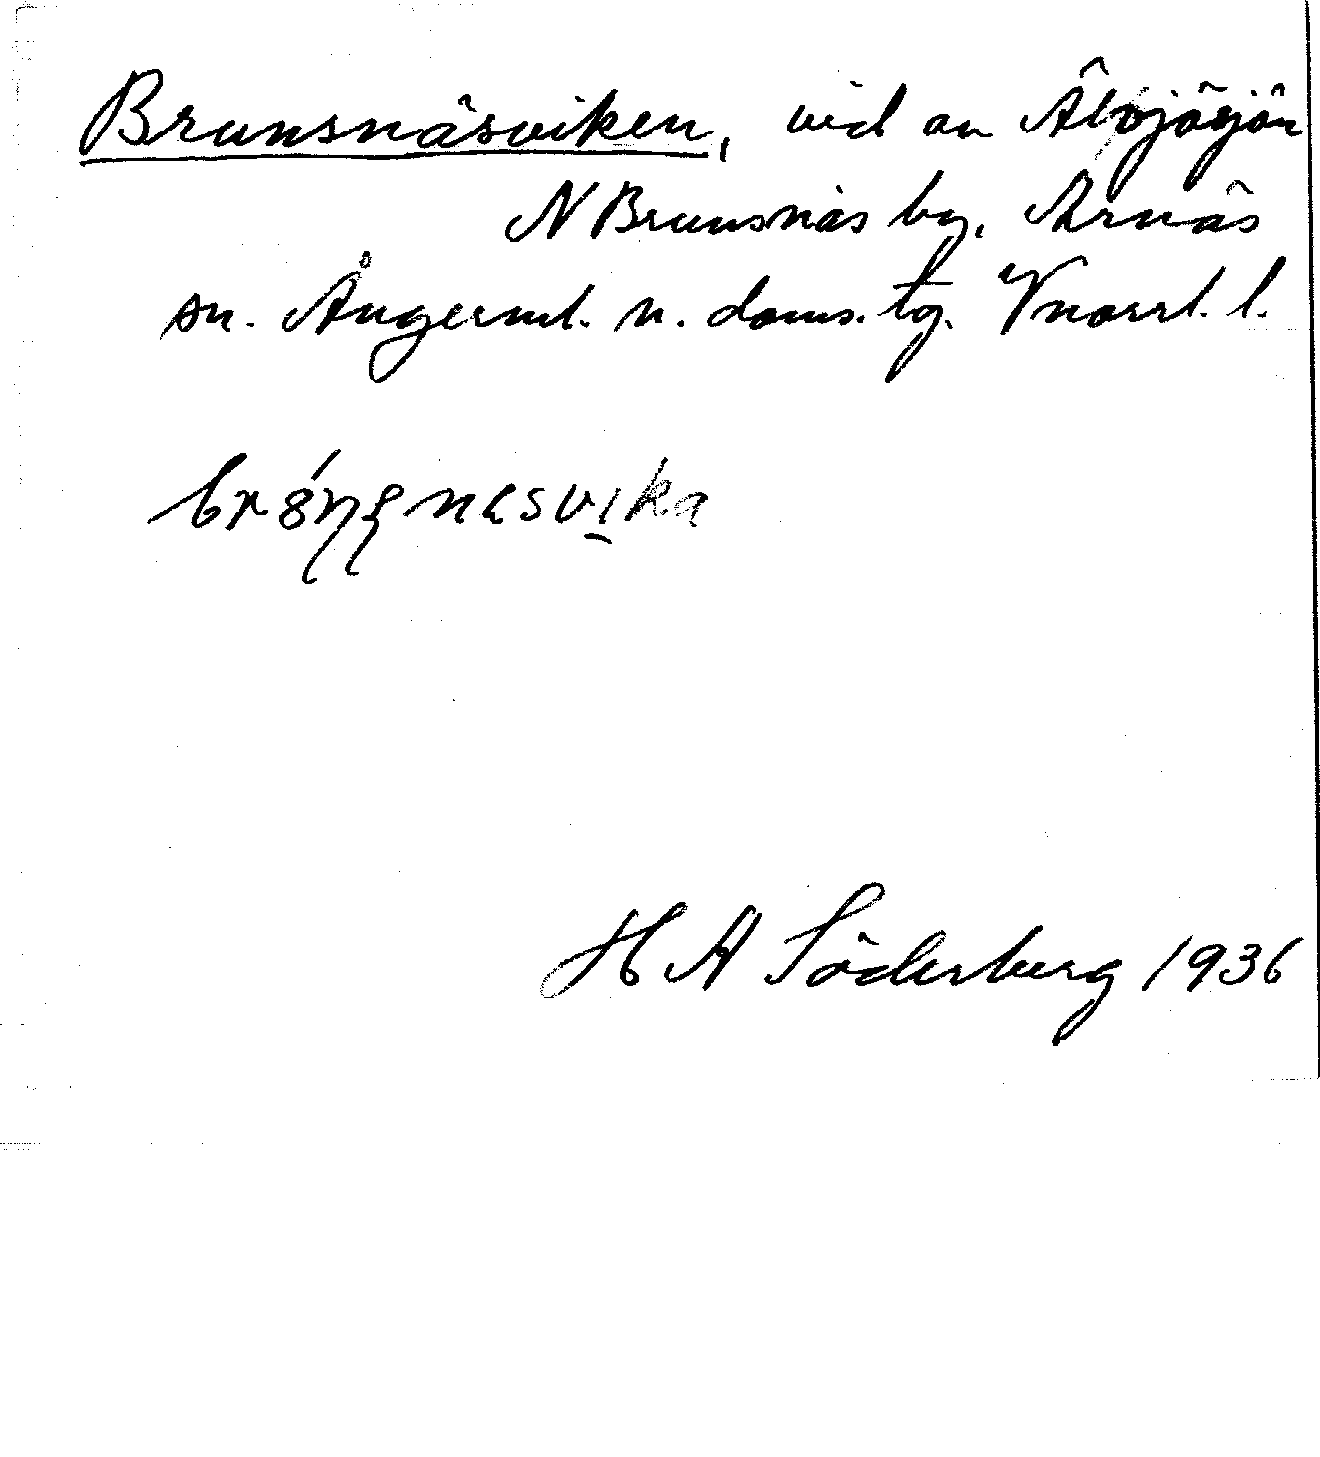 Brunsnäsviken, vid an Älösjösjön
N Brunsnäs by, Arnäs
sn. Ångerml. n. doms. tg. Vnorrl. l.
H A Söderberg 1936